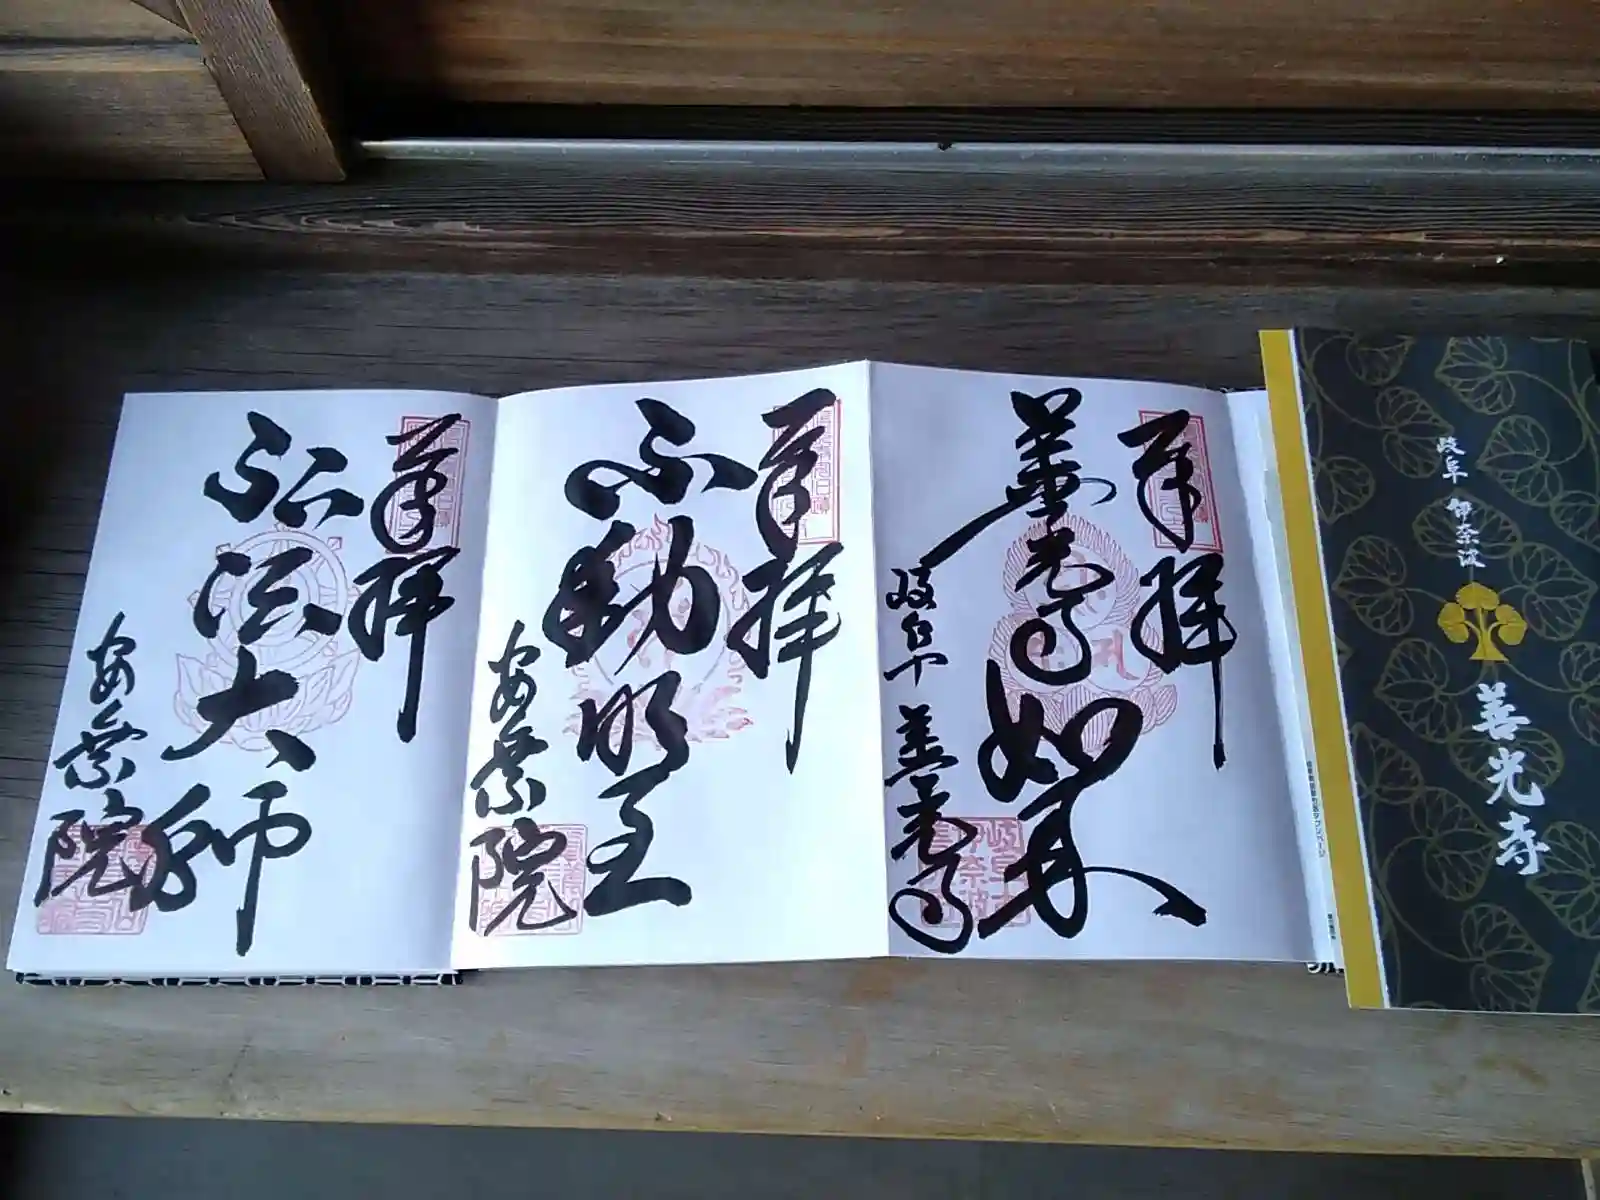 岐阜 伊奈波
善光寺
奉拝
善光寺如来
岐阜 善光寺
奉拝
不動明王
安乗院
奉拝
弘法大師
安乗院